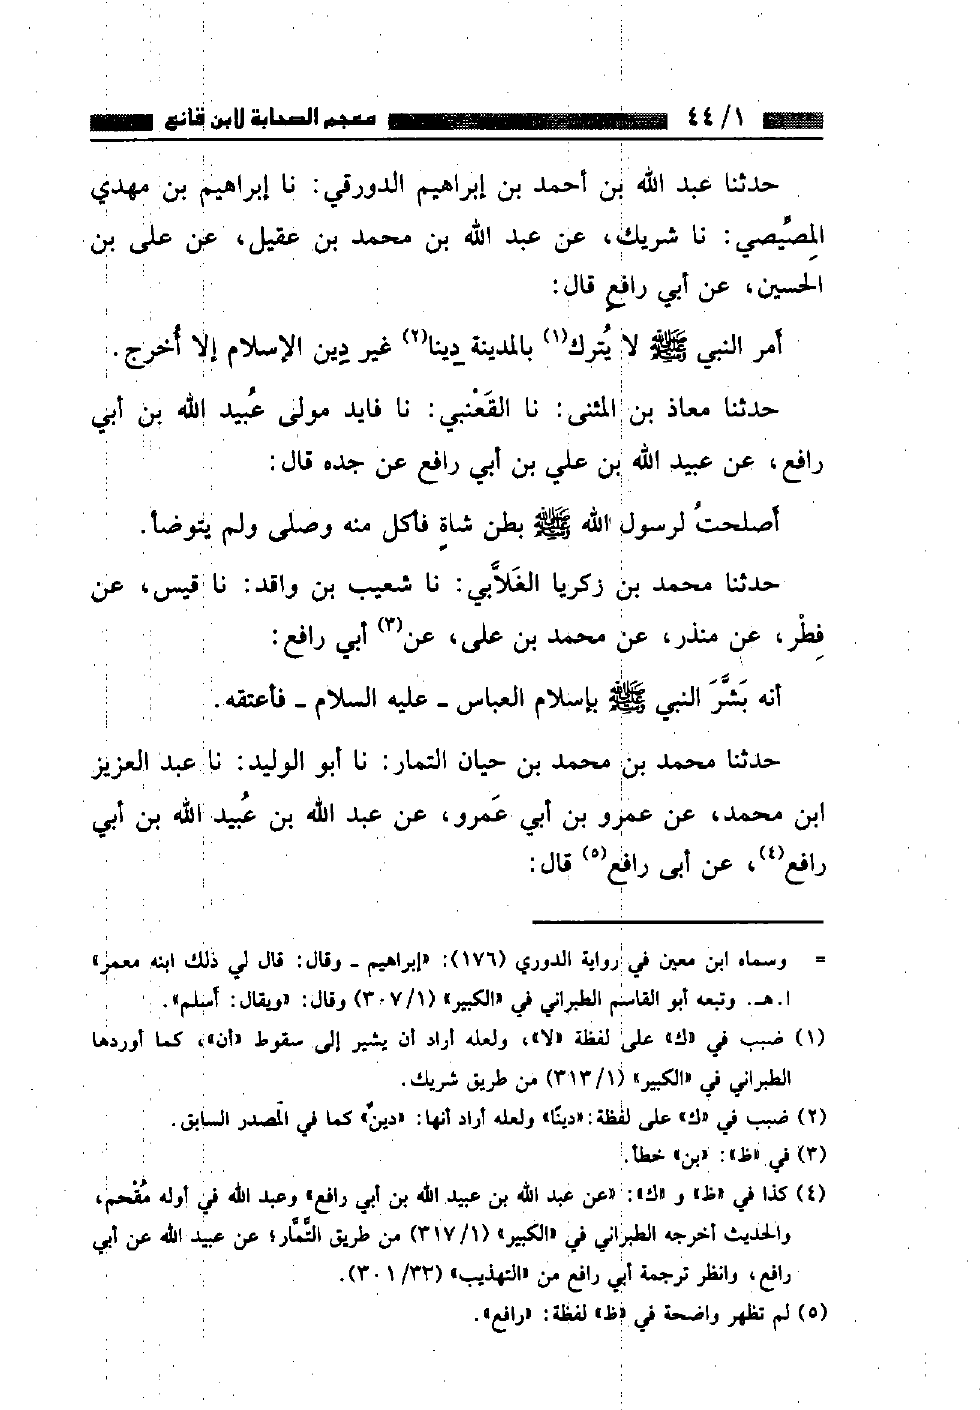 ٤٤/١ معجم الصحابة لابن قانع
حدثنا عبد الله بن أحمد بن إبراهيم الدورقي: نا إبراهيم بن مهدي
المِصيِّصي: نا شريك، عن عبد الله بن محمد بن عقيل، عن على بن
الحسين، عن أبي رافعٍ قال:
أمر النبي ﷺ لا يُترك(١) بالمدينة دِينا(٢) غير دِين الإسلام إلا أُخرج.
حدثنا معاذ بن المثنى: نا القَعْنبي: نا فايد مولى عُبيد الله بن أبي
رافع، عن عبيد الله بن علي بن أبي رافع عن جده قال:
أصلحتُ لرسول الله ﷺ بطن شاةٍ فأكل منه وصلى ولم يتوضأ.
حدثنا محمد بن زكريا الغَلاَّبي: نا شعيب بن واقد: نا قيس، عن
فِطْر، عن منذر، عن محمد بن على، عن(٣) أبي رافع:
أنه بَشَّرَ النبي ﷺ بإسلام العباس ـ عليه السلام ـ فأعتقه.
حدثنا محمد بن محمد بن حيان التمار: نا أبو الوليد: نا عبد العزيز
ابن محمد، عن عمرو بن أبي عَمرو، عن عبد الله بن عُبيد الله بن أبي
رافع(٤)، عن أبى رافع(٥) قال:
= وسماه ابن معين في رواية الدوري (١٧٦): «إبراهيم ـ وقال: قال لي ذلك ابنه معمر»
ا.هـ. وتبعه أبو القاسم الطبراني في «الكبير» (٣٠٧/١) وقال: «ويقال: أسلم».
(١) ضبب في «ك» على لفظة «لا»، ولعله أراد أن يشير إلى سقوط «أن»، كما أوردها
الطبراني في «الكبير» (٣١٣/١) من طريق شريك.
(٢) ضبب في «ك» على لفظة: «دينًا» ولعله أراد أنها: «دينٌ» كما في المصدر السابق.
(٣) في «ظ»: «بن» خطأ.
(٤) كذا في «ظ» و «ك»: «عن عبد الله بن عبيد الله بن أبي رافع» وعبد الله في أوله مُقْحم،
والحديث أخرجه الطبراني في «الكبير» (٣١٧/١) من طريق التَّمَّار؛ عن عبيد الله عن أبي
رافع، وانظر ترجمة أبي رافع من «التهذيب» (٣٠١/٣٣).
(٥) لم تظهر واضحة في «ظ» لفظة: «رافع».